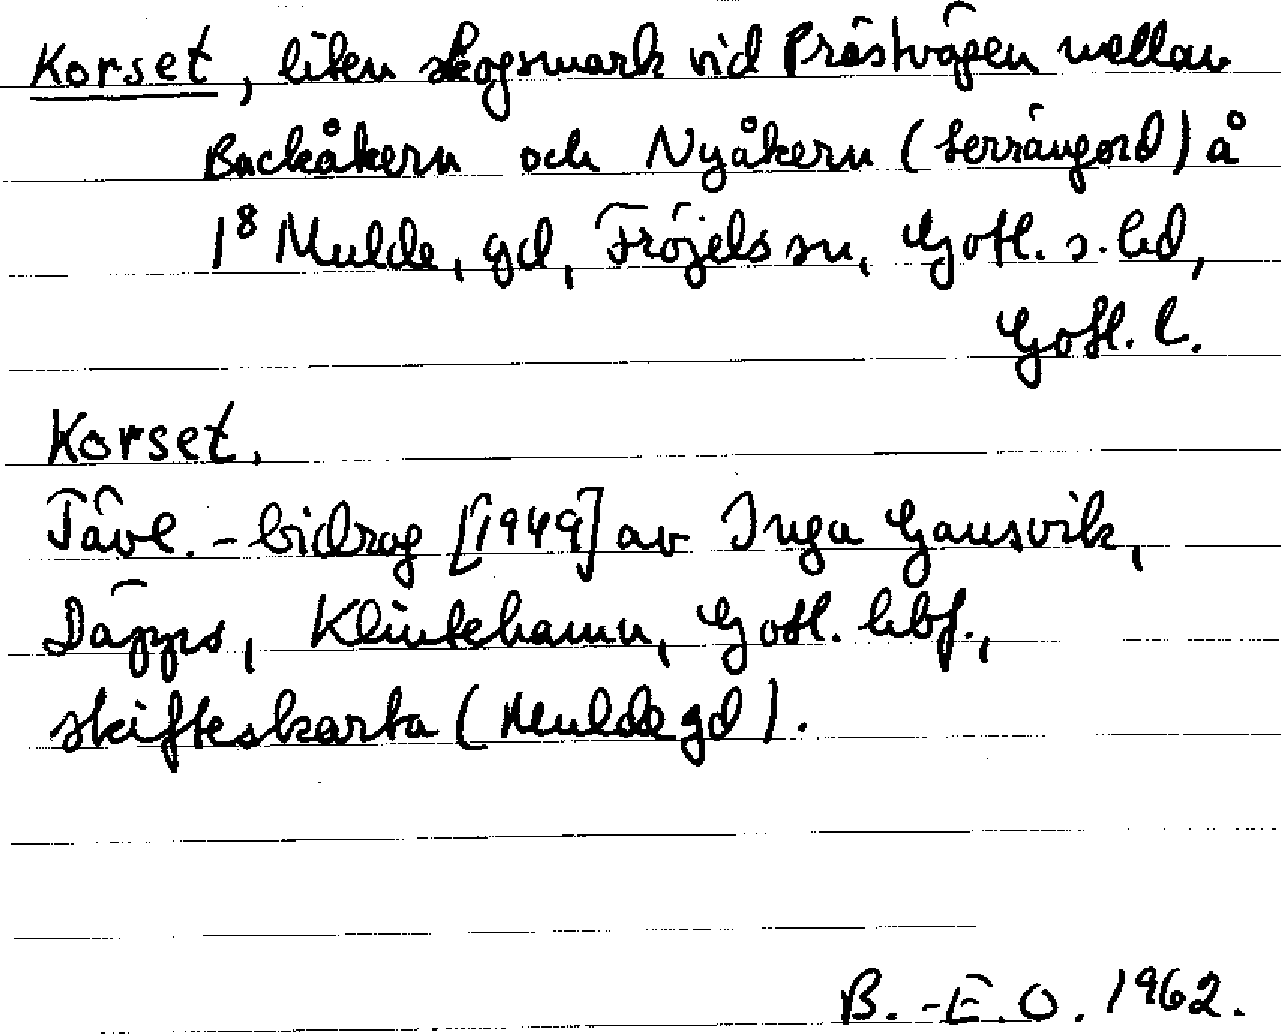 Korset, liten skogsmark vid Prästvägen mellan
Backåkern och Nyåkern (terrängord) å
1⁸ Mulde, gd, Fröjels sn, Gotl. s. hd,
Gotl. l.
Korset.
Tävl.-bidrag [1949] av Inga Gansvik,
Däpps, Klintehamn, Gotl. hbf.,
skifteskarta (Mulde gd).
B.-E.O. 1962.